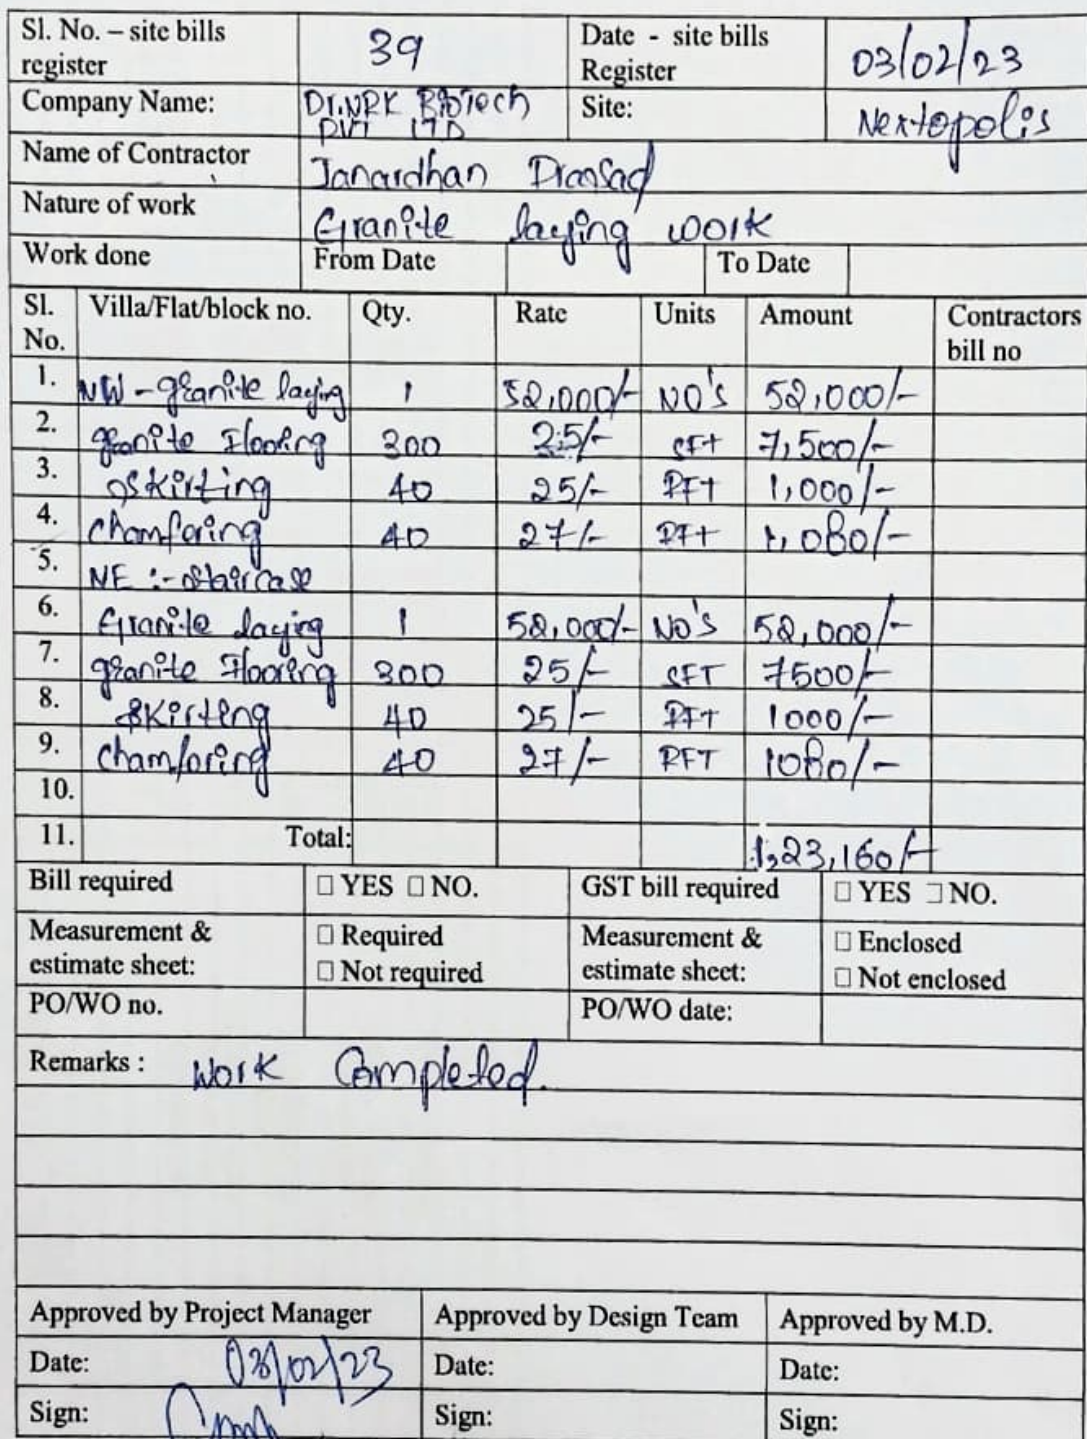 Sl. No. – site bills register 39 Date - site bills Register 03/02/23
Company Name: Dr.NRK Biotech PVT LTD Site: Nextopolis
Name of Contractor Janardhan Prasad
Nature of work Granite laying work
Work done From Date To Date
Sl. No. Villa/Flat/block no. Qty. Rate Units Amount Contractors bill no
1. NW - granite laying 1 52,000/- NO'S 52,000/-
2. granite Flooring 300 25/- SFT 7,500/-
3. Skirting 40 25/- RFT 1,000/-
4. Chamfaring 40 27/- RFT 1,080/-
5. NE :- Staircase
6. Granite laying 1 52,000/- NO'S 52,000/-
7. granite Flooring 300 25/- SFT 7500/-
8. Skirting 40 25/- RFT 1000/-
9. Chamfaring 40 27/- RFT 1080/-
10.
11. Total: 1,23,160/-
Bill required □ YES □ NO. GST bill required □ YES □ NO.
Measurement & estimate sheet: □ Required □ Not required Measurement & estimate sheet: □ Enclosed □ Not enclosed
PO/WO no. PO/WO date:
Remarks : Work Completed.
Approved by Project Manager Approved by Design Team Approved by M.D.
Date: 03/02/23 Date: Date:
Sign: Sign: Sign: